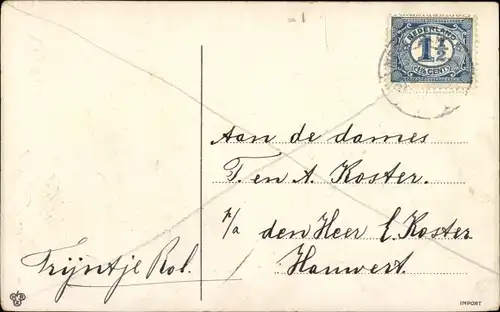 NEDERLAND
1½
1½ CENT
Aan de dames
T. en A. Koster.
p/a den Heer E. Koster
Hauwert.
Trijntje Rol.
IMPORT